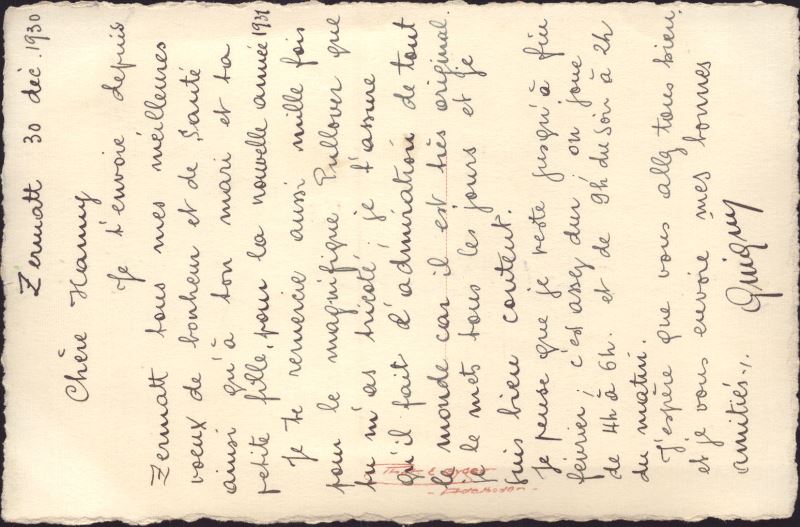 Zermatt 30 déc. 1930
Chère Hanny
Je t'envoie depuis
Zermatt tous mes meilleures
voeux de bonheur et de santé
ainsi qu'à ton mari et ta
petite fille, pour la nouvelle année 1931
Je te remercie aussi mille fois
pour le magnifique Pullover que
tu m'as tricoté; je t'assure
qu'il fait d'admiration de tout
le monde car il est très original.
Je le mets tous les jours et je
suis bien content.
Je pense que je reste jusqu'à fin
février; c'est assez dur on joue
de 4h à 6h. et de 9h du soir à 2h
du matin.
J'espère que vous allez tous bien,
et je vous envoie mes bonnes
amitiés.
Adelboden -